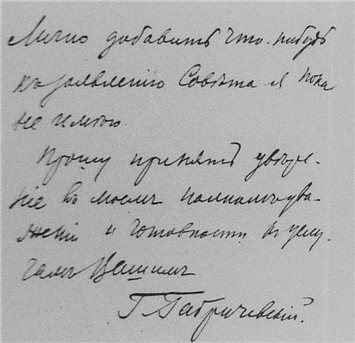 Лично добавить что-нибудь
къ заявленію Совѣта я пока
не имѣю.
Прошу принять увѣре-
ніе въ моемъ полномъ ува-
женіи и готовности къ услу-
гамъ Вашимъ
Г. Габричевскій.